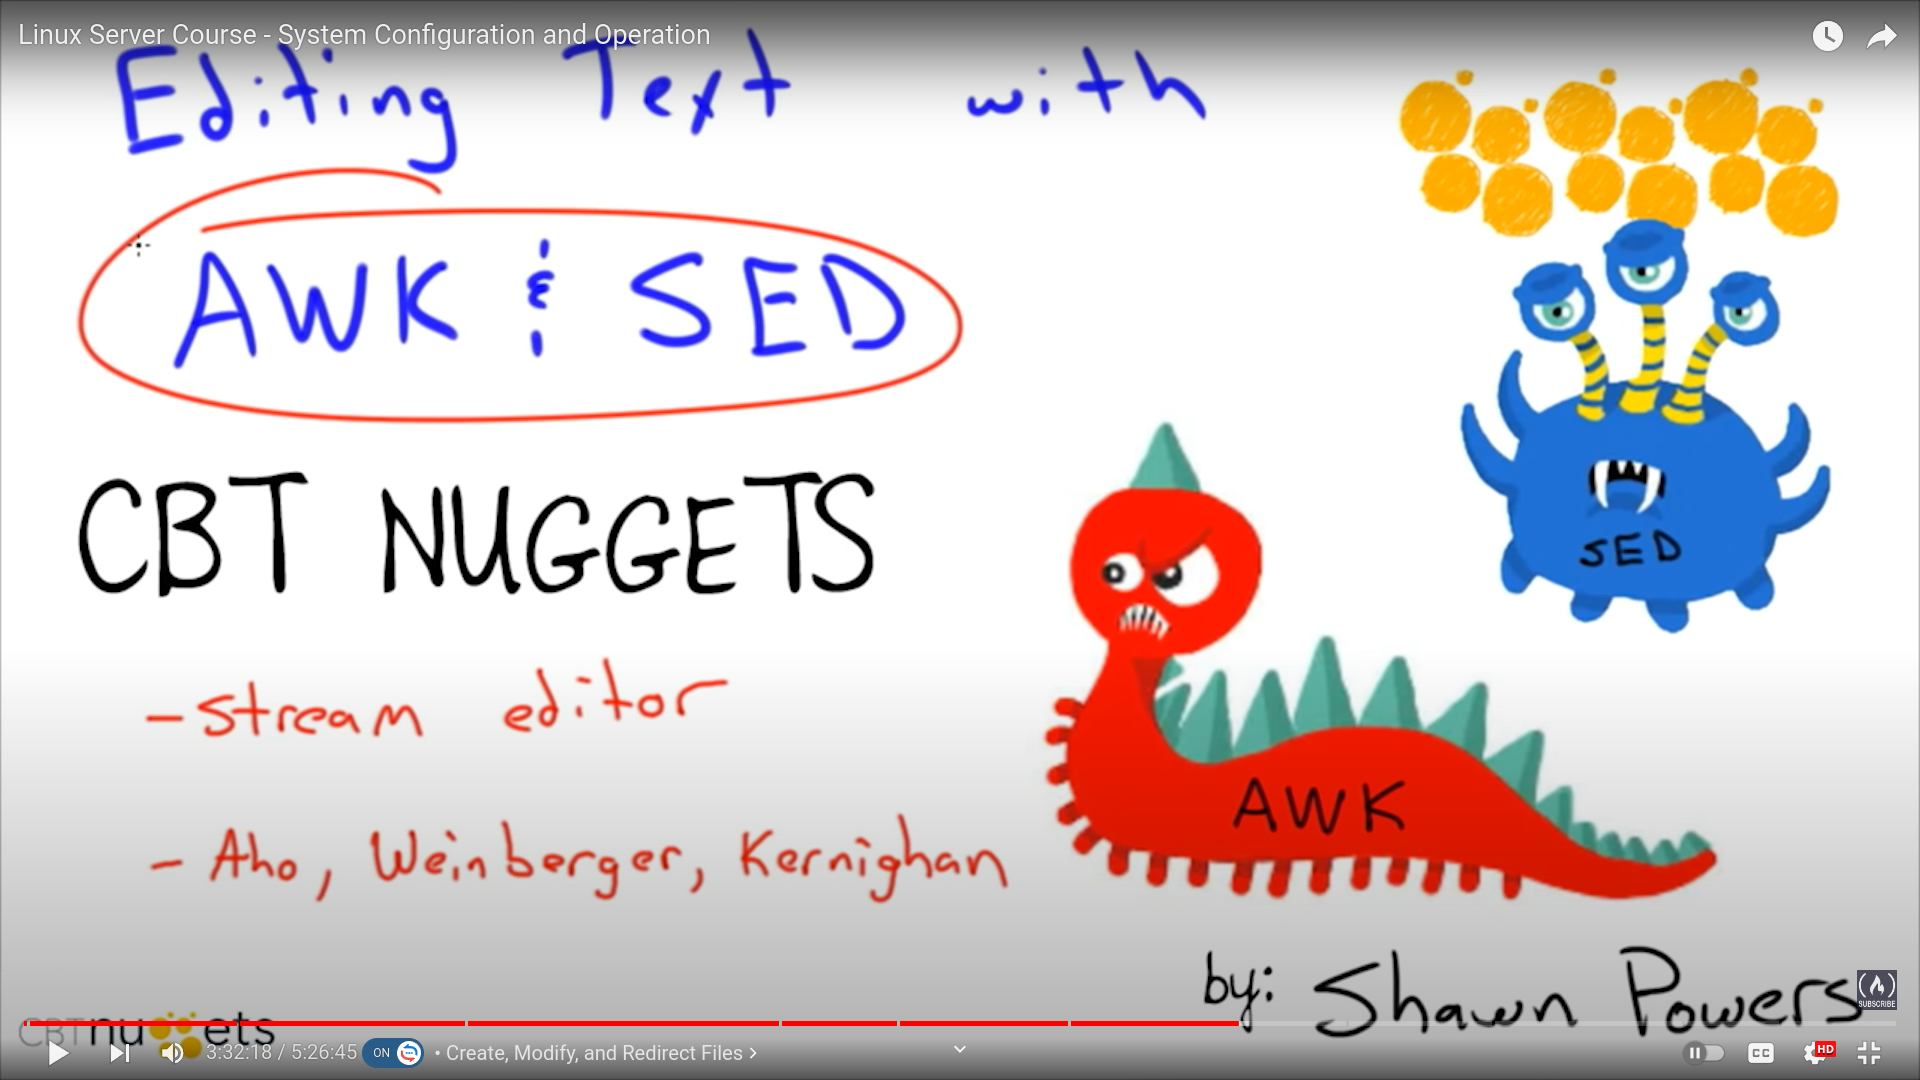 Linux Server Course - System Configuration and Operation
Editing Text with
AWK & SED
CBT NUGGETS
SED
- stream editor
AWK
- Aho, Weinberger, Kernighan
by: Shawn Powers
SUBSCRIBE
CBTnuggets
3:32:18 / 5:26:45
ON
• Create, Modify, and Redirect Files >
CC
HD